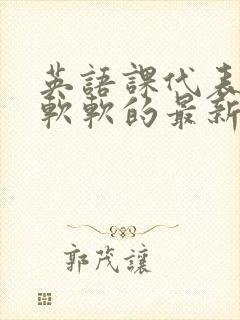 英語課代表
軟軟的最新
郭茂讓